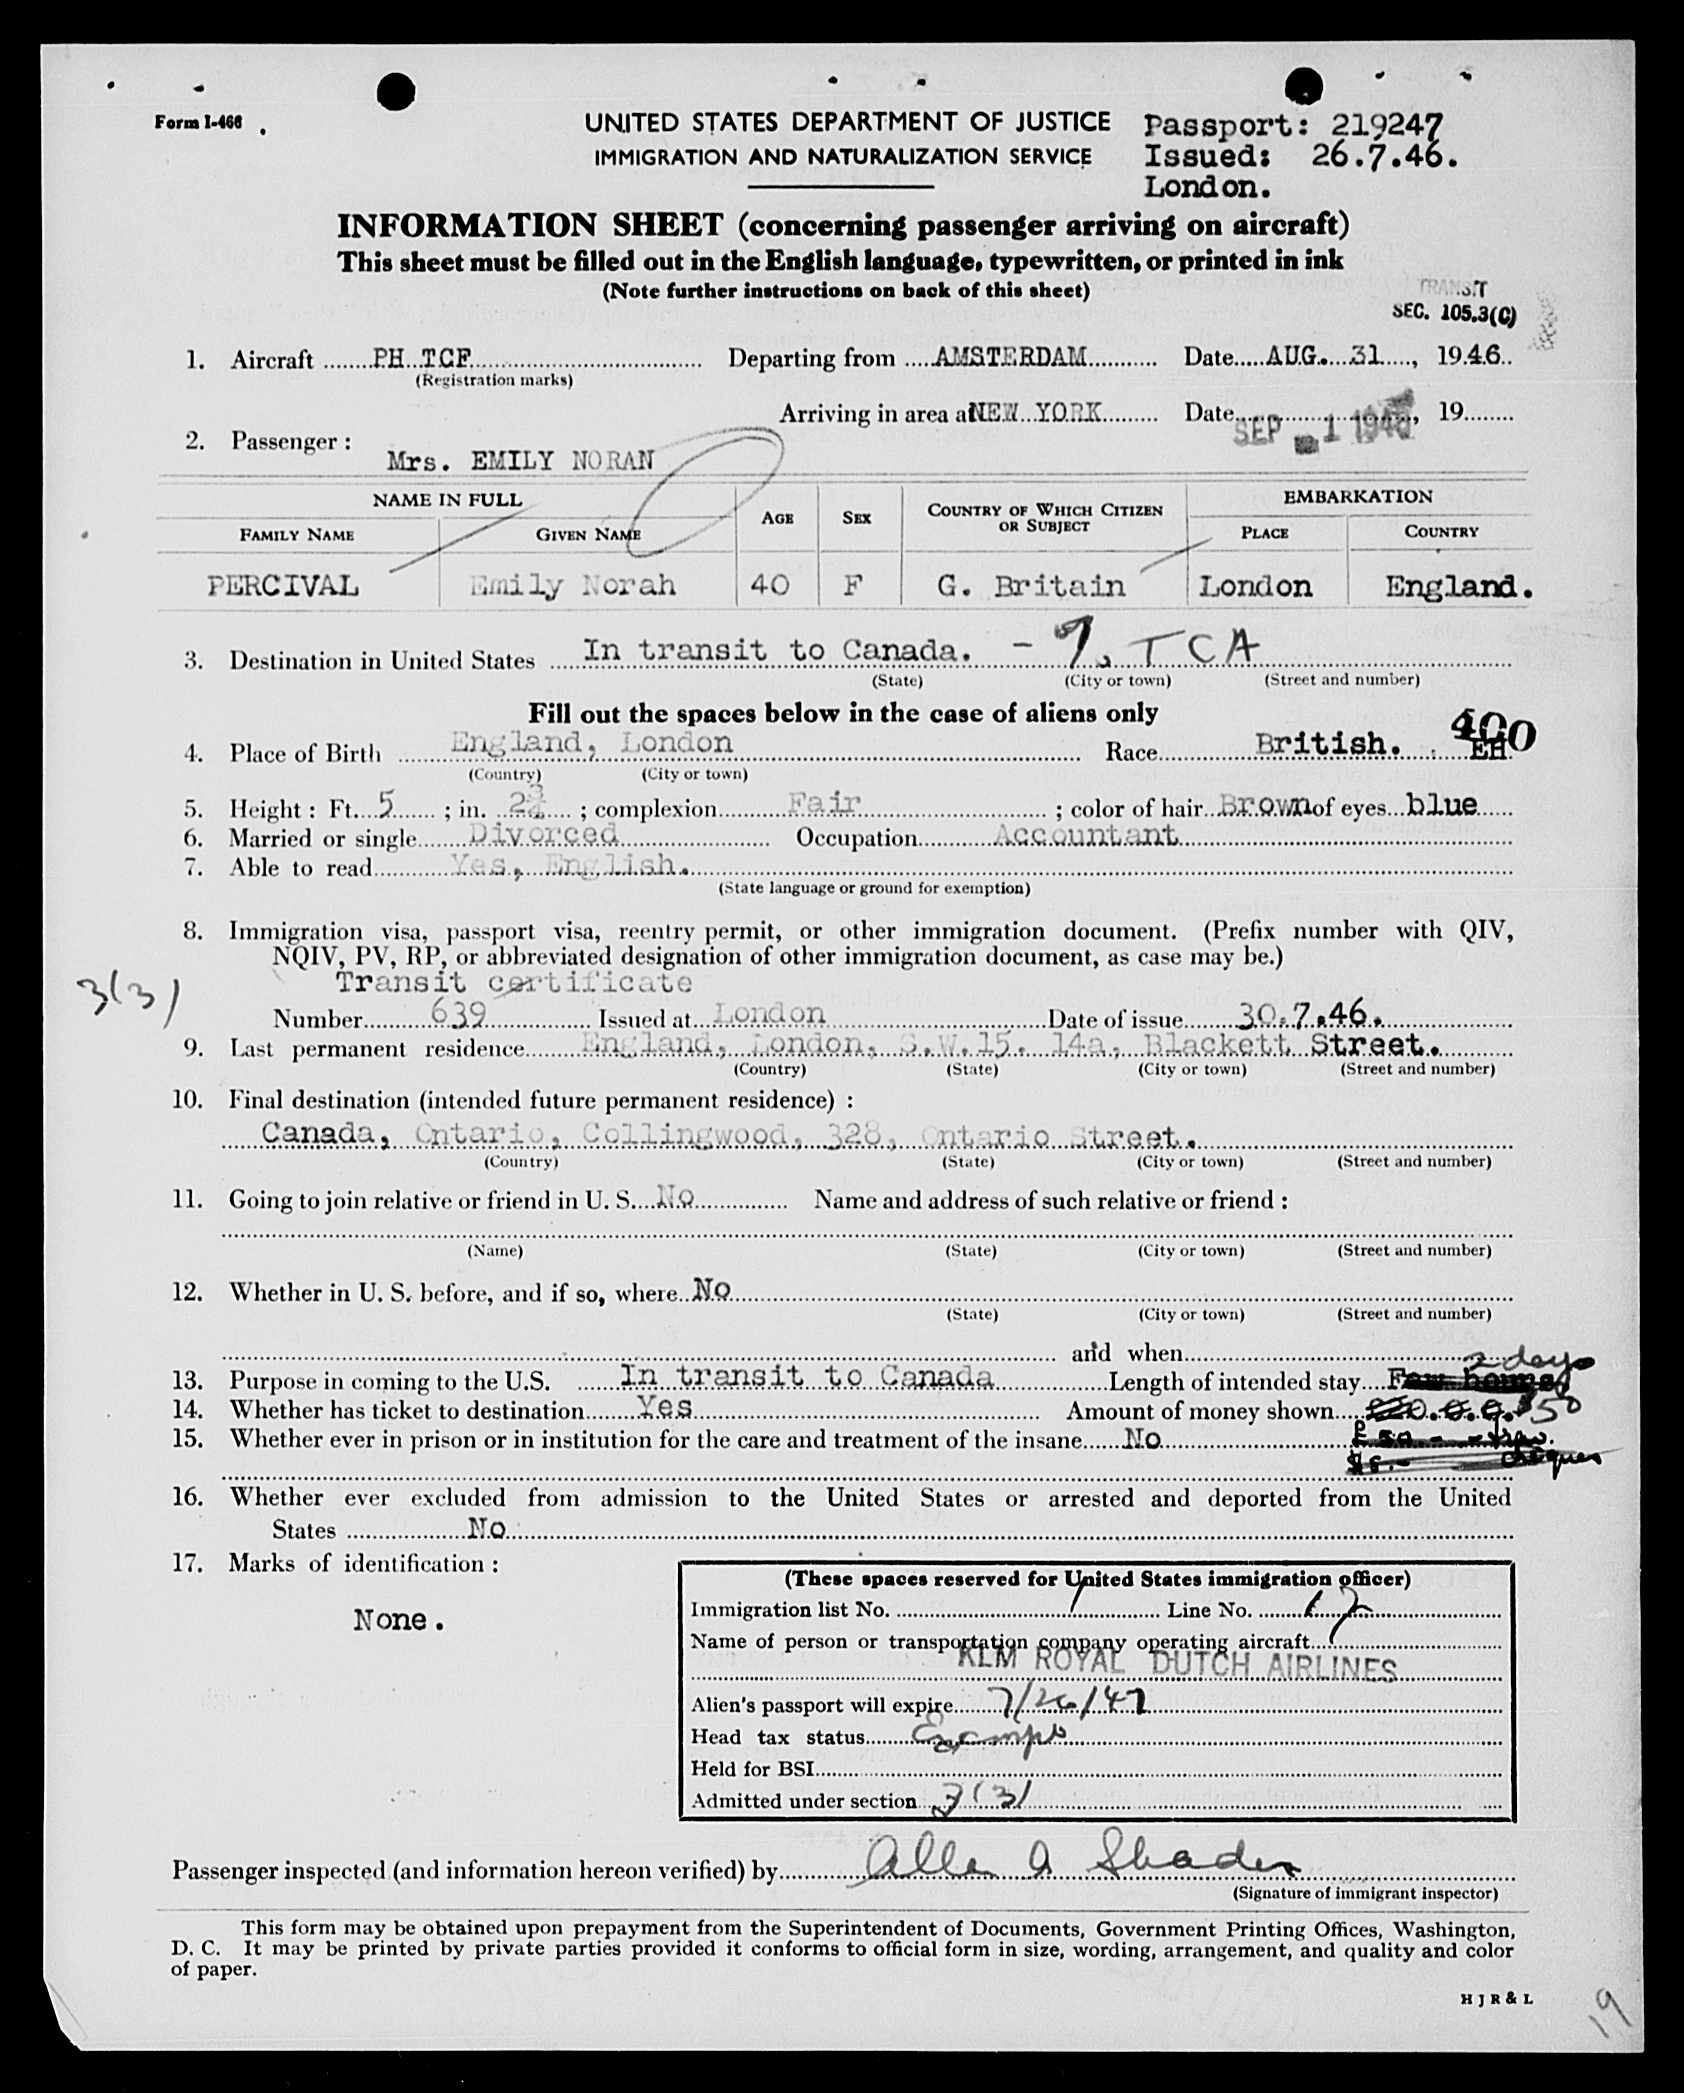 Form I-466
UNITED STATES DEPARTMENT OF JUSTICE
IMMIGRATION AND NATURALIZATION SERVICE
Passport: 219247
Issued: 26.7.46.
London.
INFORMATION SHEET (concerning passenger arriving on aircraft)
This sheet must be filled out in the English language, typewritten, or printed in ink
(Note further instructions on back of this sheet)
TRANSIT
SEC. 105.3(C)
1. Aircraft PH TCF Departing from AMSTERDAM Date AUG. 31, 1946
(Registration marks)
Arriving in area at NEW YORK Date SEP 1 1946, 19
2. Passenger :
Mrs. EMILY NORAN
NAME IN FULL EMBARKATION
FAMILY NAME GIVEN NAME AGE SEX COUNTRY OF WHICH CITIZEN OR SUBJECT PLACE COUNTRY
PERCIVAL Emily Norah 40 F G. Britain London England.
3. Destination in United States In transit to Canada. - TCA
(State) (City or town) (Street and number)
Fill out the spaces below in the case of aliens only
400
4. Place of Birth England, London Race British. EH
(Country) (City or town)
5. Height : Ft. 5 ; in. 2¾ ; complexion Fair ; color of hair Brown of eyes blue
6. Married or single Divorced Occupation Accountant
7. Able to read Yes, English.
(State language or ground for exemption)
8. Immigration visa, passport visa, reentry permit, or other immigration document. (Prefix number with QIV,
NQIV, PV, RP, or abbreviated designation of other immigration document, as case may be.)
3(3)
Transit certificate
Number 639 Issued at London Date of issue 30.7.46.
9. Last permanent residence England, London, S.W.15. 14a, Blackett Street.
(Country) (State) (City or town) (Street and number)
10. Final destination (intended future permanent residence) :
Canada, Ontario, Collingwood, 328, Ontario Street.
(Country) (State) (City or town) (Street and number)
11. Going to join relative or friend in U. S. No Name and address of such relative or friend :
(Name) (State) (City or town) (Street and number)
12. Whether in U. S. before, and if so, where No
(State) (City or town) (Street and number)
and when
2 days
13. Purpose in coming to the U.S. In transit to Canada Length of intended stay Few hours
14. Whether has ticket to destination Yes Amount of money shown £20.0.0. $50
15. Whether ever in prison or in institution for the care and treatment of the insane No
cheques
16. Whether ever excluded from admission to the United States or arrested and deported from the United
States No
17. Marks of identification :
None.
(These spaces reserved for United States immigration officer)
Immigration list No. 1 Line No. 12
Name of person or transportation company operating aircraft
KLM ROYAL DUTCH AIRLINES
Alien's passport will expire 7/26/47
Head tax status Exempt
Held for BSI
Admitted under section 3(3)
Passenger inspected (and information hereon verified) by
(Signature of immigrant inspector)
This form may be obtained upon prepayment from the Superintendent of Documents, Government Printing Offices, Washington,
D. C. It may be printed by private parties provided it conforms to official form in size, wording, arrangement, and quality and color
of paper.
H J R & L
19